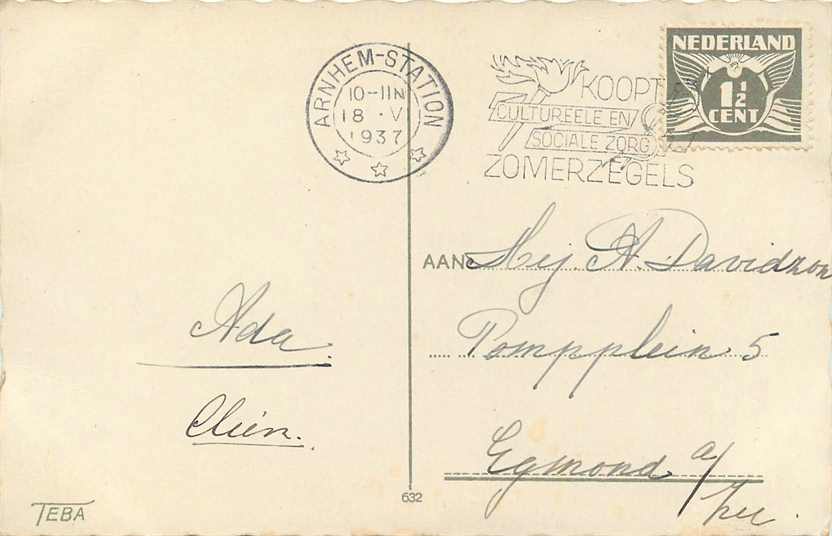 ARNHEM-STATION
10-11N
18 · V
1937
KOOPT
CULTUREELE EN
SOCIALE ZORG
ZOMERZEGELS
NEDERLAND
1½
CENT
AAN Mej. A. Davidzon
Pompplein 5
Egmond a/
Zee
Ada.
Clien.
TEBA
632